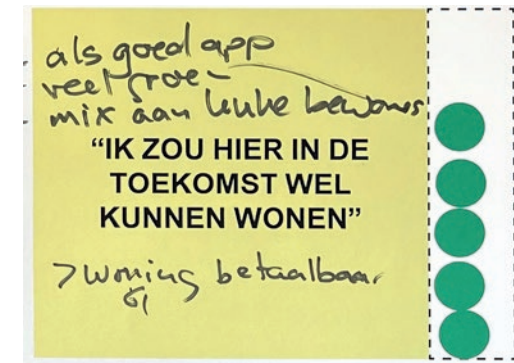 als goed app
veel groe-
mix aan leuke bewoners
“IK ZOU HIER IN DE
TOEKOMST WEL
KUNNEN WONEN”
> woning betaalbaar